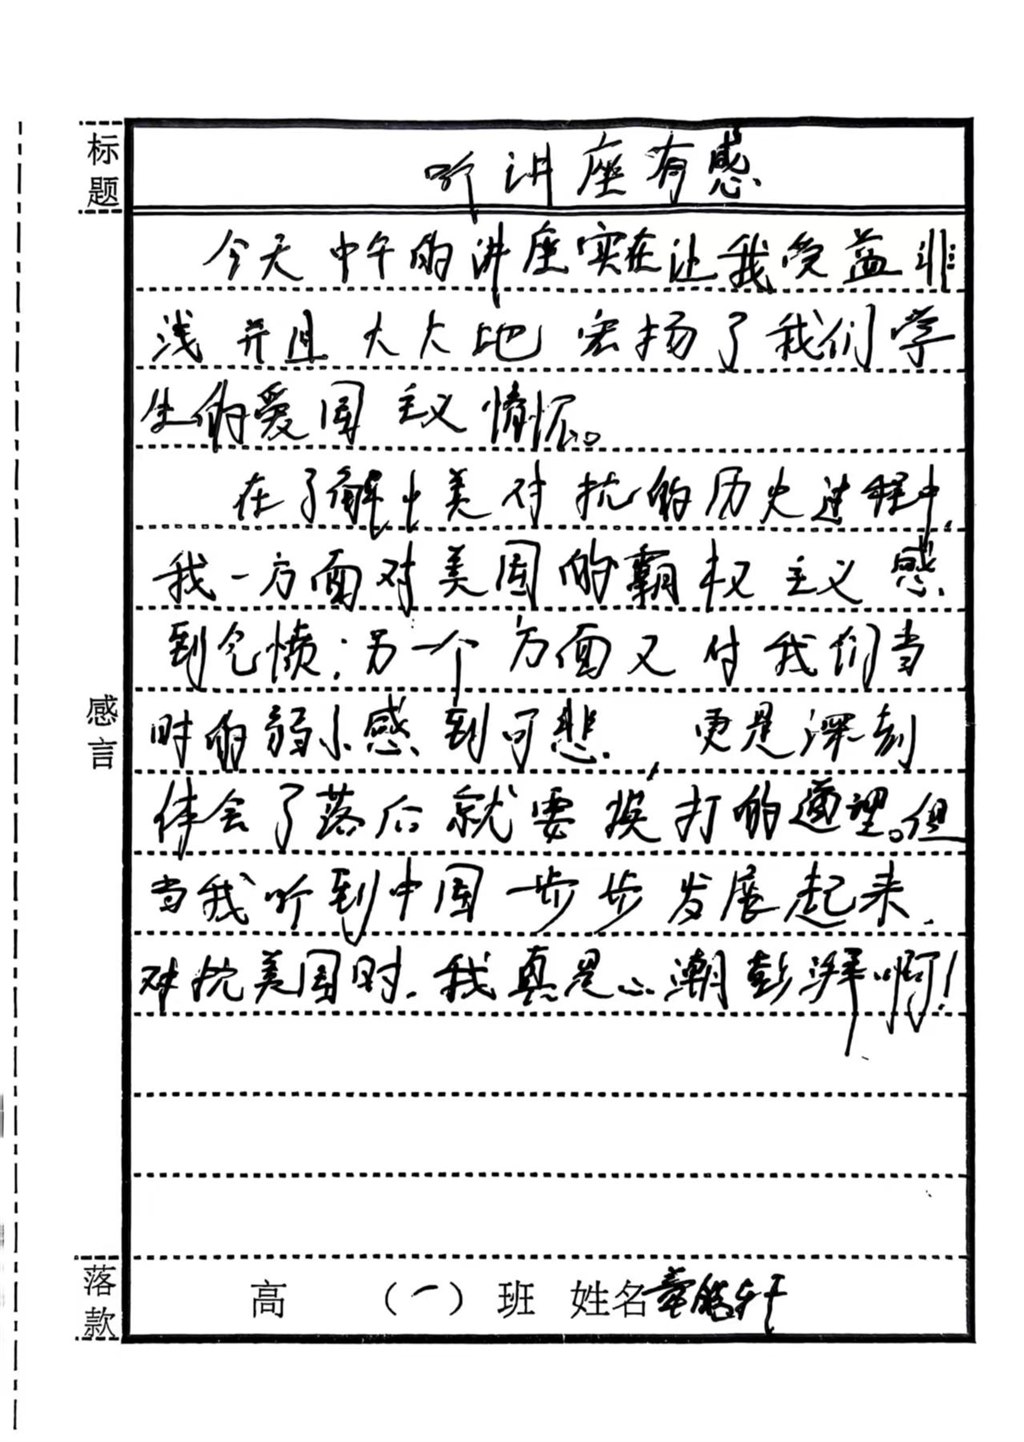 标题
听讲座有感
今天中午的讲座实在让我受益非
浅并且大大地宏扬了我们学
生的爱国主义情怀。
在了解中美对抗的历史过程中,
我一方面对美国的霸权主义感
到气愤;另一个方面又付我们当
时的弱小感到可悲,更是深刻
体会了落后就要挨打的道理。但
当我听到中国一步步发展起来,
对抗美国时,我真是心潮彭湃啊!
感言
落款
高 (一)班 姓名